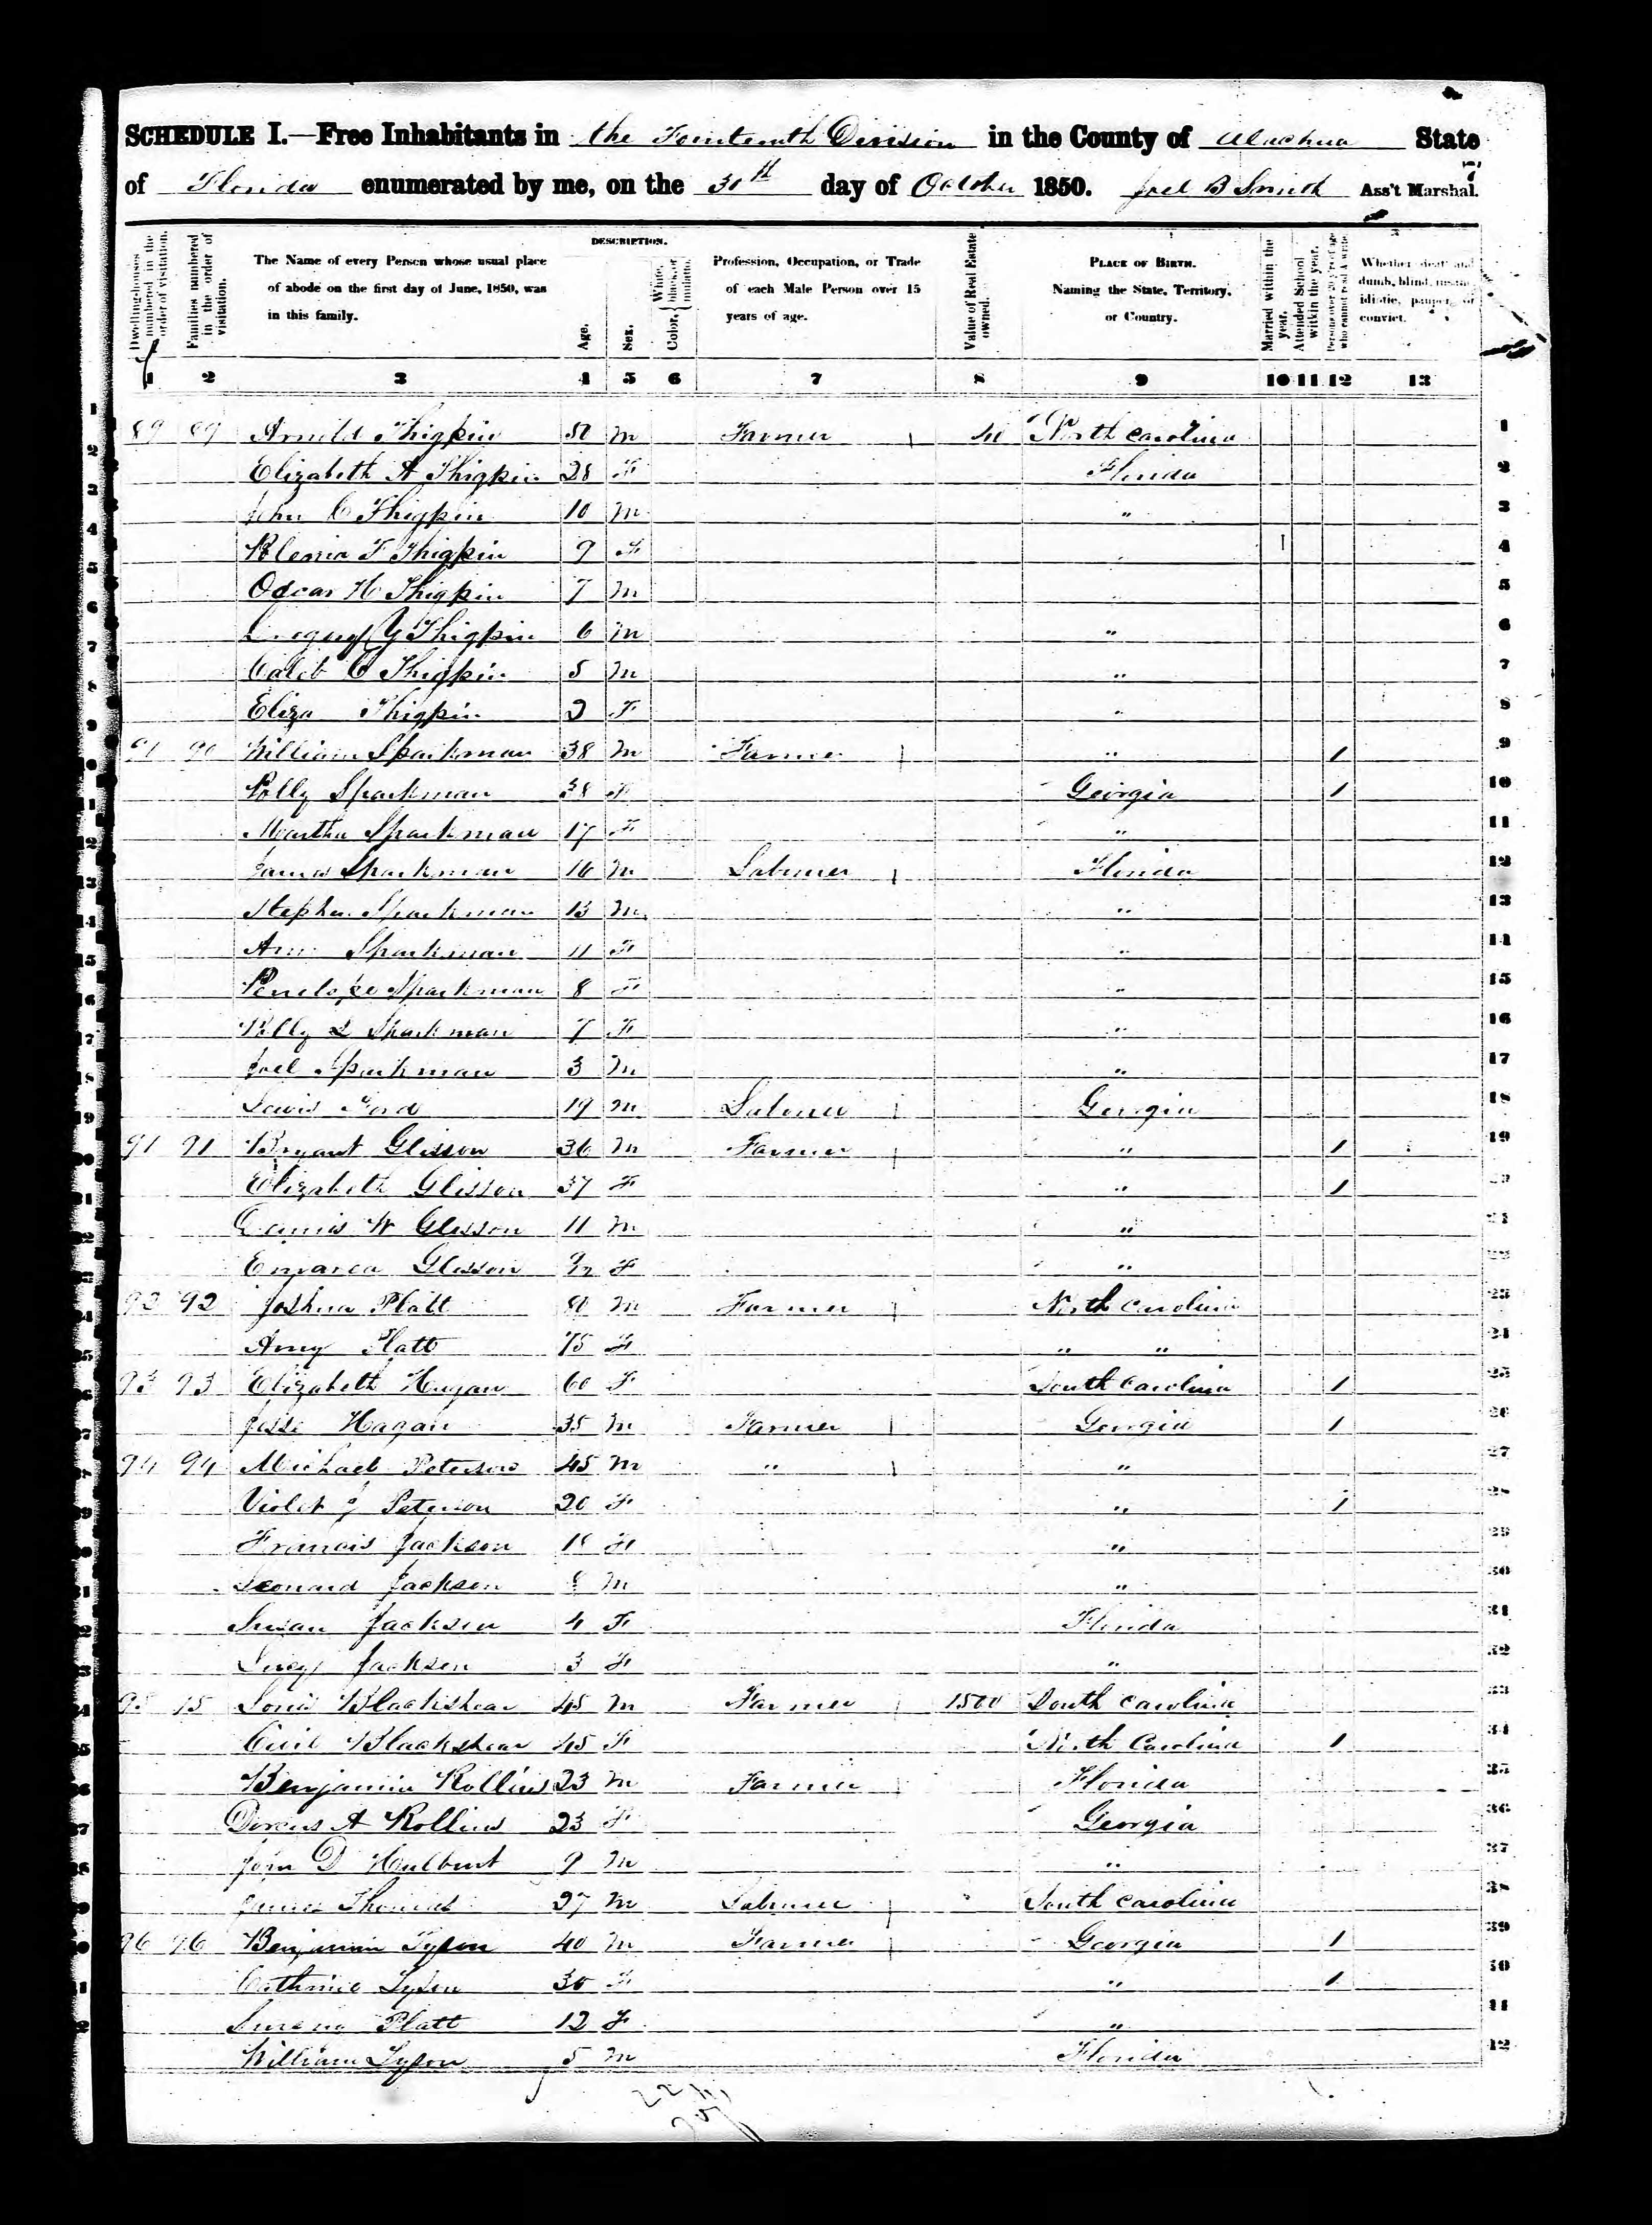 SCHEDULE I.—Free Inhabitants in the Fourteenth Division in the County of Alachua State
of Florida enumerated by me, on the 30th day of October 1850. Joel B Smith Ass't Marshal.
7
Dwelling-houses numbered in the order of visitation.
Families numbered in the order of visitation.
The Name of every Person whose usual place of abode on the first day of June, 1850, was in this family.
DESCRIPTION.
Age.
Sex.
Color, White, black, or mulatto.
Profession, Occupation, or Trade of each Male Person over 15 years of age.
Value of Real Estate owned.
PLACE OF BIRTH. Naming the State, Territory, or Country.
Married within the year.
Attended School within the year.
Persons over 20 y'rs of age who cannot read & write.
Whether deaf and dumb, blind, insane, idiotic, pauper, or convict.
1 2 3 4 5 6 7 8 9 10 11 12 13
1 89 89 Arnold Thigpin 50 m Farmer 40 North Carolina 1
2 Elizabeth A Thigpin 28 F Florida 2
3 John C Thigpin 10 m " 3
4 F Thigpin 9 F " 4
5 Oscar H Thigpin 7 m " 5
6 Thigpin 6 m " 6
7 Caleb C Thigpin 5 m " 7
8 Eliza Thigpin 2 F " 8
9 90 William Sparkman 38 m Farmer " 1 9
10 Polly Sparkman 38 F Georgia 1 10
11 Martha Sparkman 17 F " 11
12 James Sparkman 16 m Laborer Florida 12
13 Stephen Sparkman 13 m " 13
14 Ann Sparkman 11 F " 14
15 Penelope Sparkman 8 F " 15
16 Polly L Sparkman 7 F " 16
17 Joel Sparkman 3 m " 17
18 Lewis Ford 19 m Laborer Georgia 18
19 91 91 Bryant Glisson 36 m Farmer " 1 19
Elizabeth Glisson 37 F " 1
Dennis W Glisson 11 m "
Glisson F "
92 92 Joshua Platt 80 m Farmer North Carolina 23
Amy Platt 75 F " " 24
93 93 Elizabeth Hagan 60 F South Carolina 1 25
Jesse Hagan 35 m Farmer Georgia 1 26
94 94 Michael Peterson 45 m " " 27
Violet J Peterson 20 F " 1 28
Francis Jackson F " 29
Leonard Jackson 8 m " 30
Susan Jackson 4 F Florida 31
Lucy Jackson 3 F " 32
95 95 Blackshear 45 m Farmer 1500 South Carolina 33
Civil Blackshear 45 F North Carolina 1 34
Benjamin Rollins 23 m Farmer Florida 35
Dorcus A Rollins 23 F Georgia 36
John D Hulburt 9 m " 37
James Thomas 27 m Laborer South Carolina 38
96 96 Benjamin Tyson 40 m Farmer Georgia 1 39
Catherine Tyson 30 F " 1 40
Platt 12 F " 41
William Tyson 5 m Florida 42